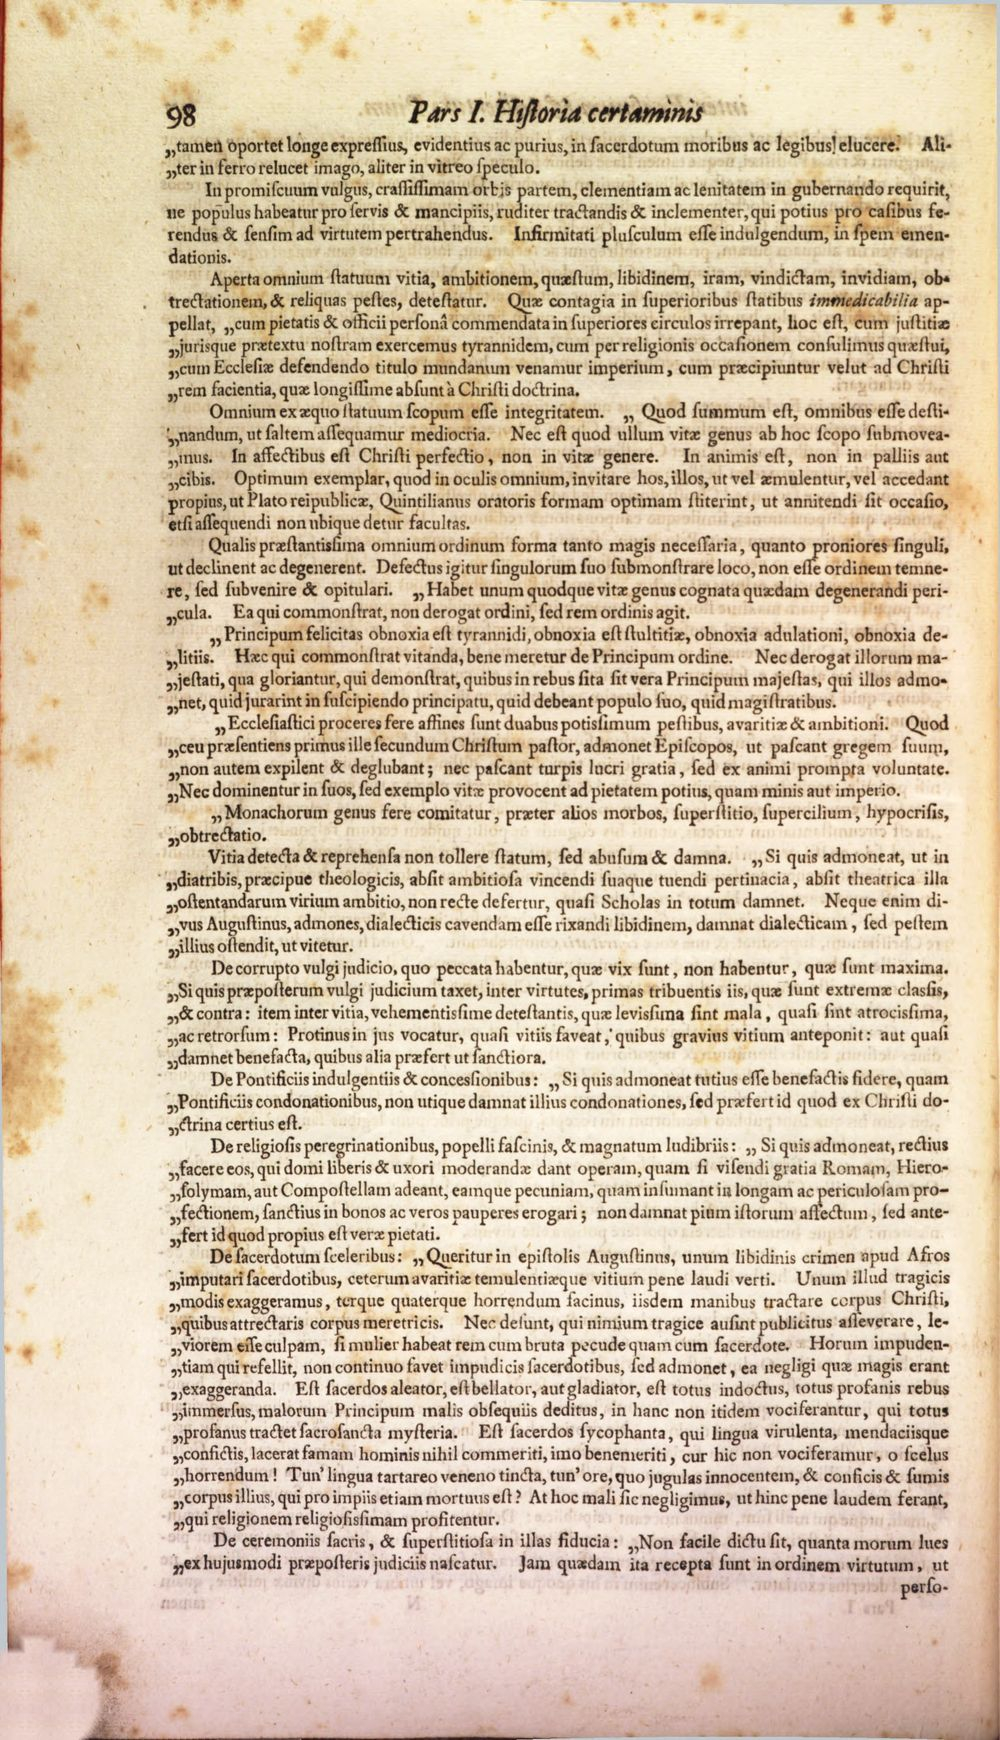 98 Pars I. Hiſtoria certaminis
„tamen oportet longe expreſſius, evidentius ac purius, in ſacerdotum moribus ac legibus! elucere. Ali-
„ter in ferro relucet imago, aliter in vitreo ſpeculo.
In promiſcuum vulgus, craſſiſſimam orbis partem, clementiam ac lenitatem in gubernando requirit,
ne populus habeatur pro ſervis & mancipiis, ruditer tractandis & inclementer, qui potius pro caſibus fe-
rendus & ſenſim ad virtutem pertrahendus. Infirmitati pluſculum eſſe indulgendum, in ſpem emen-
dationis.
Aperta omnium ſtatuum vitia, ambitionem, quæſtum, libidinem, iram, vindictam, invidiam, ob-
trectationem, & reliquas peſtes, deteſtatur. Quæ contagia in ſuperioribus ſtatibus immedicabilia ap-
pellat, „cum pietatis & officii perſonâ commendata in ſuperiores circulos irrepant, hoc eſt, cum juſtitiæ
„jurisque prætextu noſtram exercemus tyrannidem, cum per religionis occaſionem conſulimus quæſtui,
„cum Eccleſiæ defendendo titulo mundanum venamur imperium, cum præcipiuntur velut ad Chriſti
„rem facientia, quæ longiſſime abſunt à Chriſti doctrina.
Omnium ex æquo ſtatuum ſcopum eſſe integritatem. „ Quod ſummum eſt, omnibus eſſe deſti-
„nandum, ut ſaltem aſſequamur mediocria. Nec eſt quod ullum vitæ genus ab hoc ſcopo ſubmovea-
„mus. In affectibus eſt Chriſti perfectio, non in vitæ genere. In animis eſt, non in palliis aut
„cibis. Optimum exemplar, quod in oculis omnium, invitare hos, illos, ut vel æmulentur, vel accedant
propius, ut Plato reipublicæ, Quintilianus oratoris formam optimam ſtiterint, ut annitendi ſit occaſio,
etſi aſſequendi non ubique detur facultas.
Qualis præſtantiſsima omnium ordinum forma tanto magis neceſſaria, quanto proniores ſinguli,
ut declinent ac degenerent. Defectus igitur ſingulorum ſuo ſubmonſtrare loco, non eſſe ordinem temne-
re, ſed ſubvenire & opitulari. „Habet unum quodque vitæ genus cognata quædam degenerandi peri-
„cula. Ea qui commonſtrat, non derogat ordini, ſed rem ordinis agit.
„ Principum felicitas obnoxia eſt tyrannidi, obnoxia eſt ſtultitiæ, obnoxia adulationi, obnoxia de-
„litiis. Hæc qui commonſtrat vitanda, bene meretur de Principum ordine. Nec derogat illorum ma-
„jeſtati, qua gloriantur, qui demonſtrat, quibus in rebus ſita ſit vera Principum majeſtas, qui illos admo-
„net, quid jurarint in ſuſcipiendo principatu, quid debeant populo ſuo, quid magiſtratibus.
„Eccleſiaſtici proceres fere affines ſunt duabus potiſsimum peſtibus, avaritiæ & ambitioni. Quod
„ceu præſentiens primus ille ſecundum Chriſtum paſtor, admonet Epiſcopos, ut paſcant gregem ſuum,
„non autem expilent & deglubant; nec paſcant turpis lucri gratia, ſed ex animi prompta voluntate.
„Nec dominentur in ſuos, ſed exemplo vitæ provocent ad pietatem potius, quam minis aut imperio.
„Monachorum genus fere comitatur, præter alios morbos, ſuperſtitio, ſupercilium, hypocriſis,
„obtrectatio.
Vitia detecta & reprehenſa non tollere ſtatum, ſed abuſum & damna. „Si quis admoneat, ut in
„diatribis, præcipue theologicis, abſit ambitioſa vincendi ſuaque tuendi pertinacia, abſit theatrica illa
„oſtentandarum virium ambitio, non recte defertur, quaſi Scholas in totum damnet. Neque enim di-
„vus Auguſtinus, admones, dialecticis cavendam eſſe rixandi libidinem, damnat dialecticam, ſed peſtem
„illius oſtendit, ut vitetur.
De corrupto vulgi judicio, quo peccata habentur, quæ vix ſunt, non habentur, quæ ſunt maxima.
„Si quis præpoſterum vulgi judicium taxet, inter virtutes, primas tribuentis iis, quæ ſunt extremæ claſſis,
„& contra: item inter vitia, vehementiſsime deteſtantis, quæ leviſsima ſint mala, quaſi ſint atrociſsima,
„ac retrorſum: Protinus in jus vocatur, quaſi vitiis faveat, quibus gravius vitium anteponit: aut quaſi
„damnet benefacta, quibus alia præfert ut ſanctiora.
De Pontificiis indulgentiis & conceſsionibus: „ Si quis admoneat tutius eſſe benefactis fidere, quam
„Pontificiis condonationibus, non utique damnat illius condonationes, ſed præfert id quod ex Chriſti do-
„ctrina certius eſt.
De religioſis peregrinationibus, popelli faſcinis, & magnatum ludibriis: „ Si quis admoneat, rectius
„facere eos, qui domi liberis & uxori moderandæ dant operam, quam ſi viſendi gratia Romam, Hiero-
„ſolymam, aut Compoſtellam adeant, eamque pecuniam, quam inſumant in longam ac periculoſam pro-
„fectionem, ſanctius in bonos ac veros pauperes erogari; non damnat pium iſtorum affectum, ſed ante-
„fert id quod propius eſt veræ pietati.
De ſacerdotum ſceleribus: „Queritur in epiſtolis Auguſtinus, unum libidinis crimen apud Afros
„imputari ſacerdotibus, ceterum avaritiæ temulentiæque vitium pene laudi verti. Unum illud tragicis
„modis exaggeramus, terque quaterque horrendum facinus, iisdem manibus tractare corpus Chriſti,
„quibus attrectaris corpus meretricis. Nec deſunt, qui nimium tragice auſint publicitus aſſeverare, le-
„viorem eſſe culpam, ſi mulier habeat rem cum bruta pecude quam cum ſacerdote. Horum impuden-
„tiam qui refellit, non continuo favet impudicis ſacerdotibus, ſed admonet, ea negligi quæ magis erant
„exaggeranda. Eſt ſacerdos aleator, eſt bellator, aut gladiator, eſt totus indoctus, totus profanis rebus
„immerſus, malorum Principum malis obſequiis deditus, in hanc non itidem vociferantur, qui totus
„profanus tractet ſacroſancta myſteria. Eſt ſacerdos ſycophanta, qui lingua virulenta, mendaciisque
„confictis, lacerat famam hominis nihil commeriti, imo benemeriti, cur hic non vociferamur, o ſcelus
„horrendum! Tun' lingua tartareo veneno tincta, tun' ore, quo jugulas innocentem, & conficis & ſumis
„corpus illius, qui pro impiis etiam mortuus eſt? At hoc mali ſic negligimus, ut hinc pene laudem ferant,
„qui religionem religioſiſsimam profitentur.
De ceremoniis ſacris, & ſuperſtitioſa in illas fiducia: „Non facile dictu ſit, quanta morum lues
„ex hujusmodi præpoſteris judiciis naſcatur. Jam quædam ita recepta ſunt in ordinem virtutum, ut
perſo-